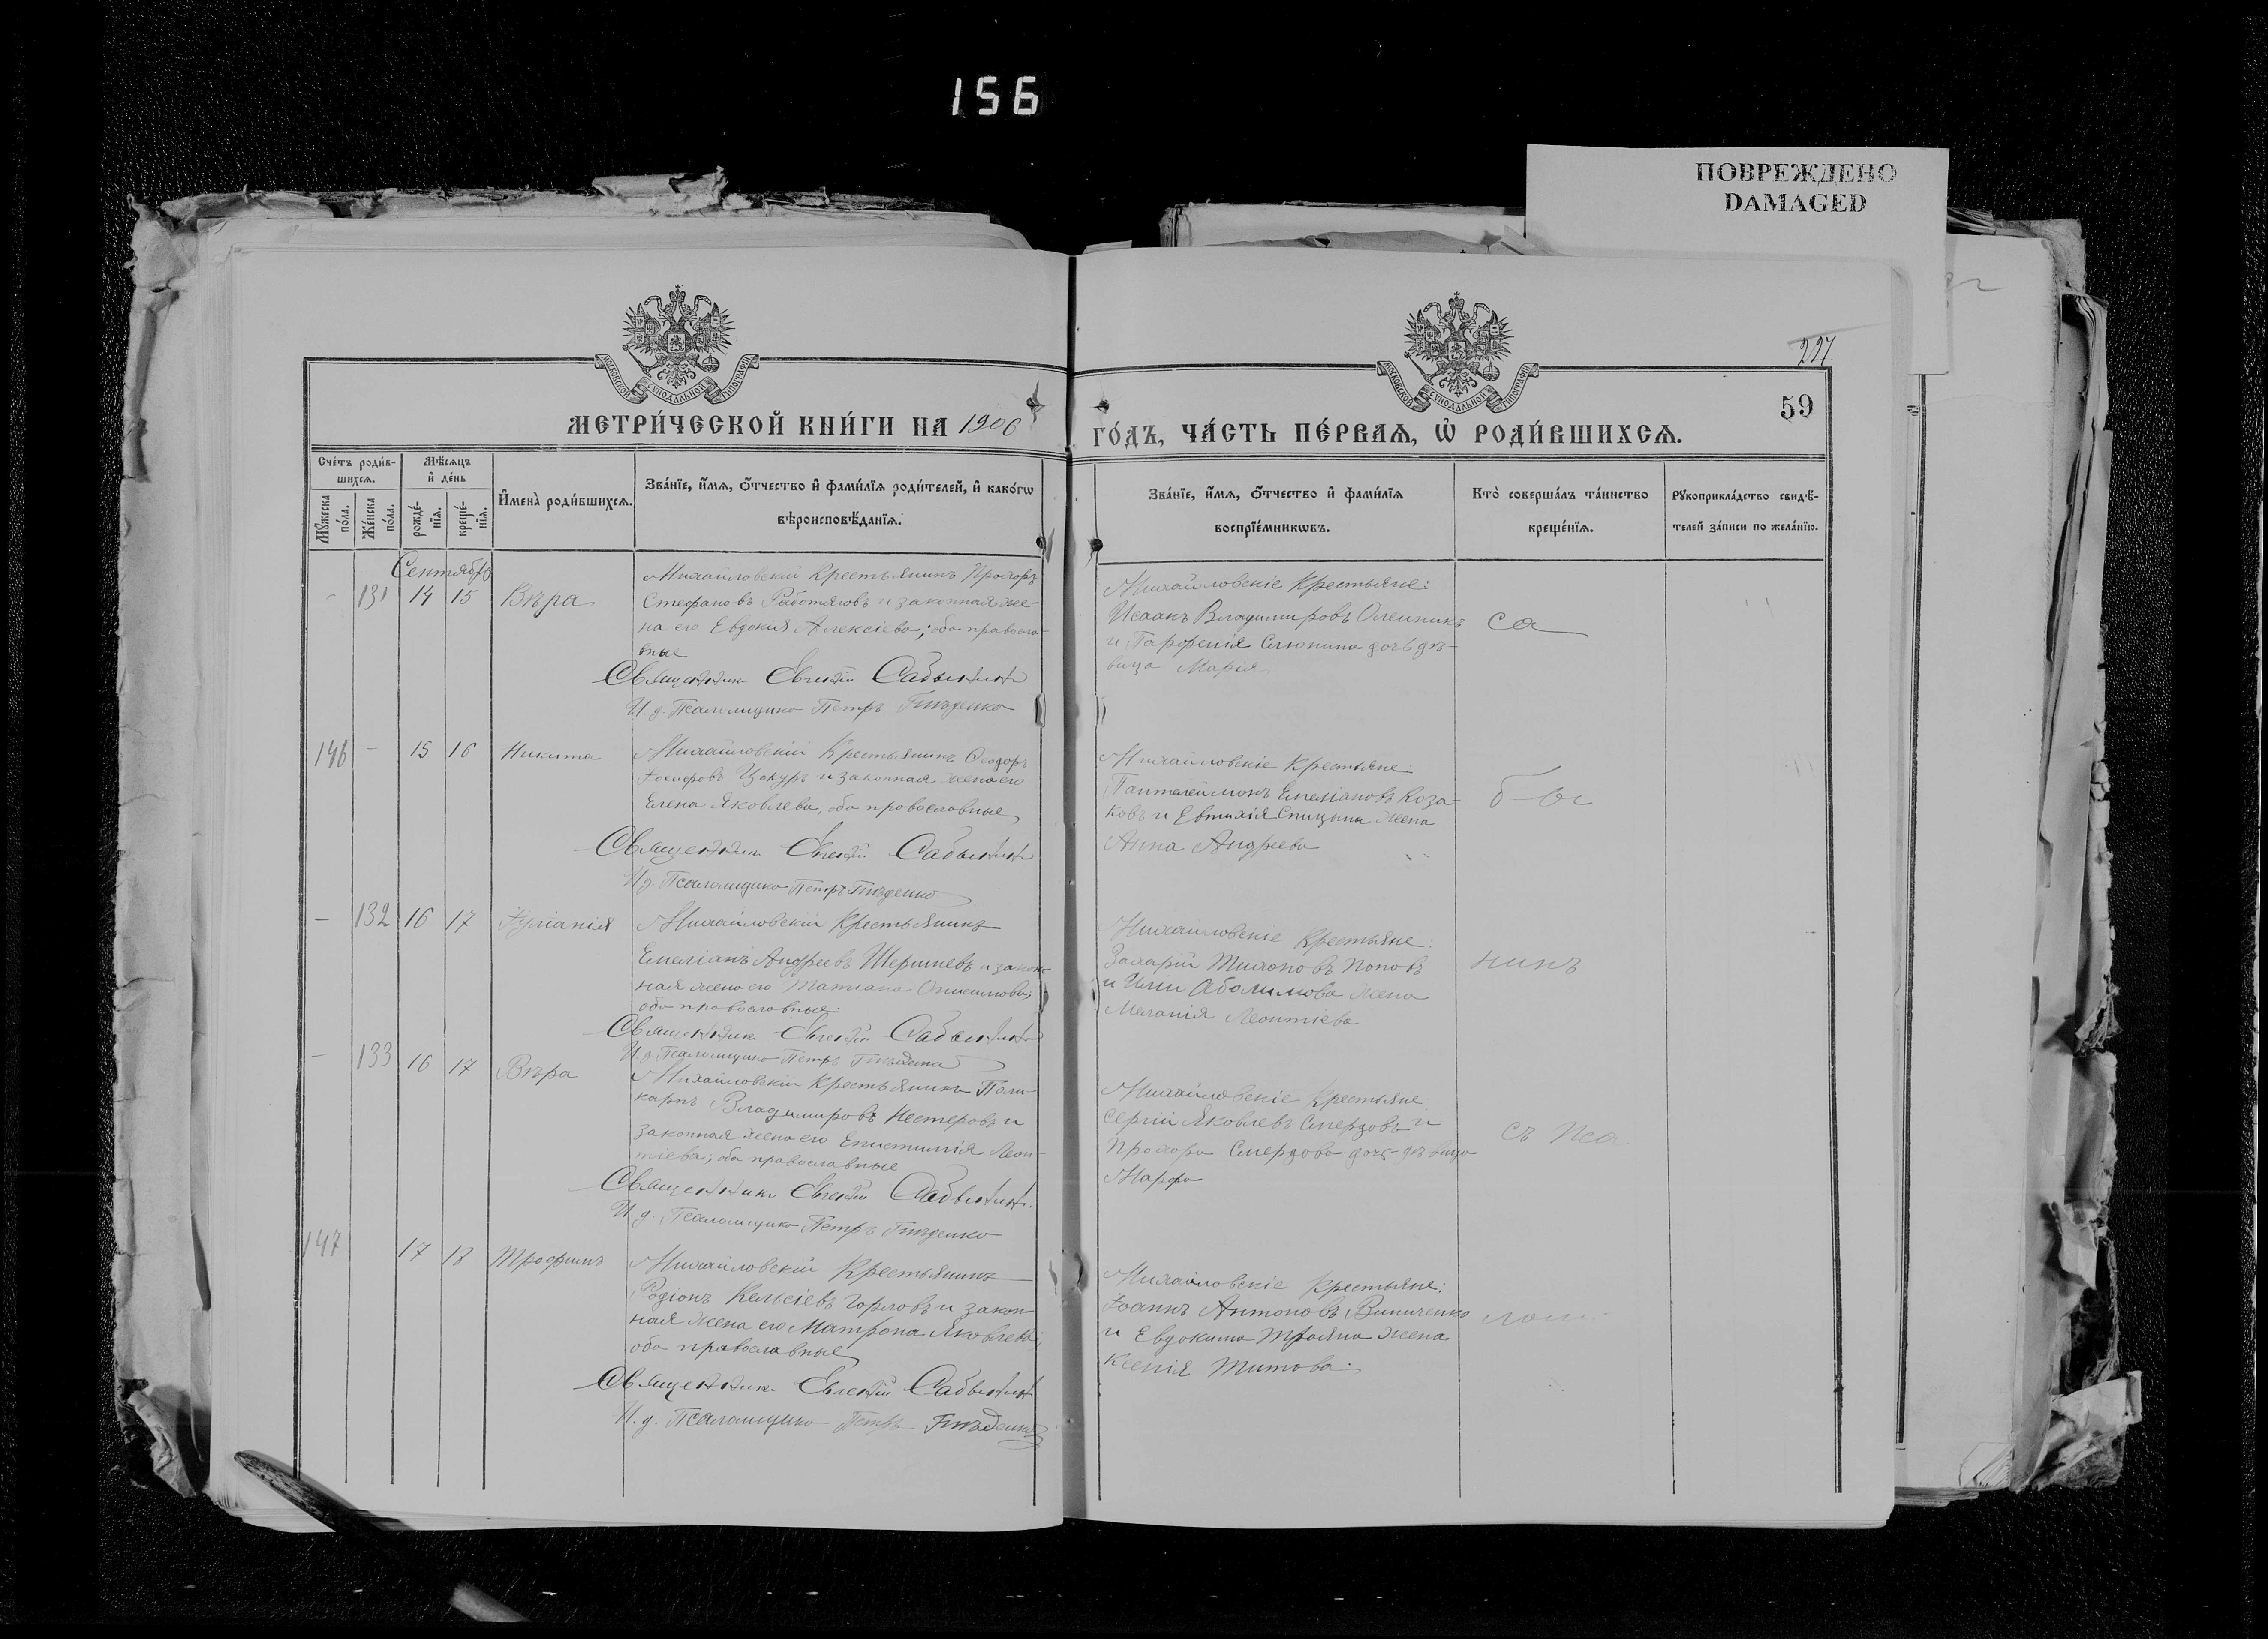 156
ПОВРЕЖДЕНО
DAMAGED
227
59
МОСКОВСКОЙ СУНОДАЛЬНОЙ ТИПОГРАФІИ
МЕТРИ́ЧЕСКОЙ КНИ́ГИ НА 1906
МОСКОВСКОЙ СУНОДАЛЬНОЙ ТИПОГРАФІИ
ГО́ДЪ, ЧА́СТЬ ПЕ́РВАЯ, Ѡ҆ РОДИ́ВШИХСЯ.
Сче́тъ роди́в-
шихсѧ.
Мꙋ́жеска
по́ла.
Же́нска
по́ла.
Мѣ́сѧцъ
и҆ де́нь
рожде́-
нїѧ.
креще́-
нїѧ.
И҆мена̀ роди́вшихсѧ.
Зва́нїе, и҆́мѧ, ѻ҆́тчество и҆ фами́лїѧ роди́телей, и҆ како́гѡ
вѣроисповѣ́данїѧ.
Зва́нїе, и҆́мѧ, ѻ҆́тчество и҆ фами́лїѧ
воспрїе́мникѡвъ.
Кто̀ соверша́лъ та́инство
креще́нїѧ.
Рꙋкоприкла́дство свидѣ́-
телей за́писи по жела́нїю.
Сентябрь
- 131 14 15 Вѣра
Михайловскій Крестьянинъ Прохоръ
Стефановъ Работяговъ и законная же-
на его Евдокія Алексіева; оба правосла-
вные
Священникъ Евгеній Сабынинъ
И. д. Псаломщика Петръ Гнѣденко
Михайловскіе Крестьяне:
Исаакъ Владимировъ Олейникъ
и Парѳенія дочь дѣ-
вица Марія
са
146 - 15 16 Никита
Михайловскій Крестьянинъ Ѳеодоръ
Іосифовъ Цокуръ и законная жена его
Елена Яковлева, оба православные
Священникъ Евгеній Сабынинъ
И. д. Псаломщика Петръ Гнѣденко
Михайловскіе Крестьяне:
Пантелеймонъ Емеліановъ Коза-
ковъ и Евтихія Спицына жена
Анна Андреева
- 132 16 17 Іуліанія
Михайловскій Крестьянинъ
Емеліанъ Андреевъ Шершневъ и закон-
ная жена его Татіана Онисимова;
оба православные.
Священникъ Евгеній Сабынинъ
И. д. Псаломщика Петръ Гнѣденко
Михайловскіе Крестьяне:
Захарій Тихоновъ Поповъ
и Иліи жена
Меланія Леонтіева
нинъ
- 133 16 17 Вѣра
Михайловскій Крестьянинъ Поли-
карпъ Владимировъ Нестеровъ и
законная жена его Епистимія Леон-
тіева; оба православные
Священникъ Евгеній Сабынинъ.
И. д. Псаломщика Петръ Гнѣденко
Михайловскіе Крестьяне
Сергій Яковлевъ Смердовъ и
Прохора Смердова дочь дѣвица
Марѳа
съ Пса
147 17 18 Трофимъ
Михайловскій Крестьянинъ
Родіонъ Келсіевъ Горловъ и закон-
ная жена его Матрона Яковлева;
оба православные
Священникъ Евгеній Сабынинъ
И. д. Псаломщика Петръ Гнѣденко
Михайловскіе Крестьяне:
Іоаннъ Антоновъ Виниченко
и Евдокима Трояна жена
Ксенія Титова.
лом